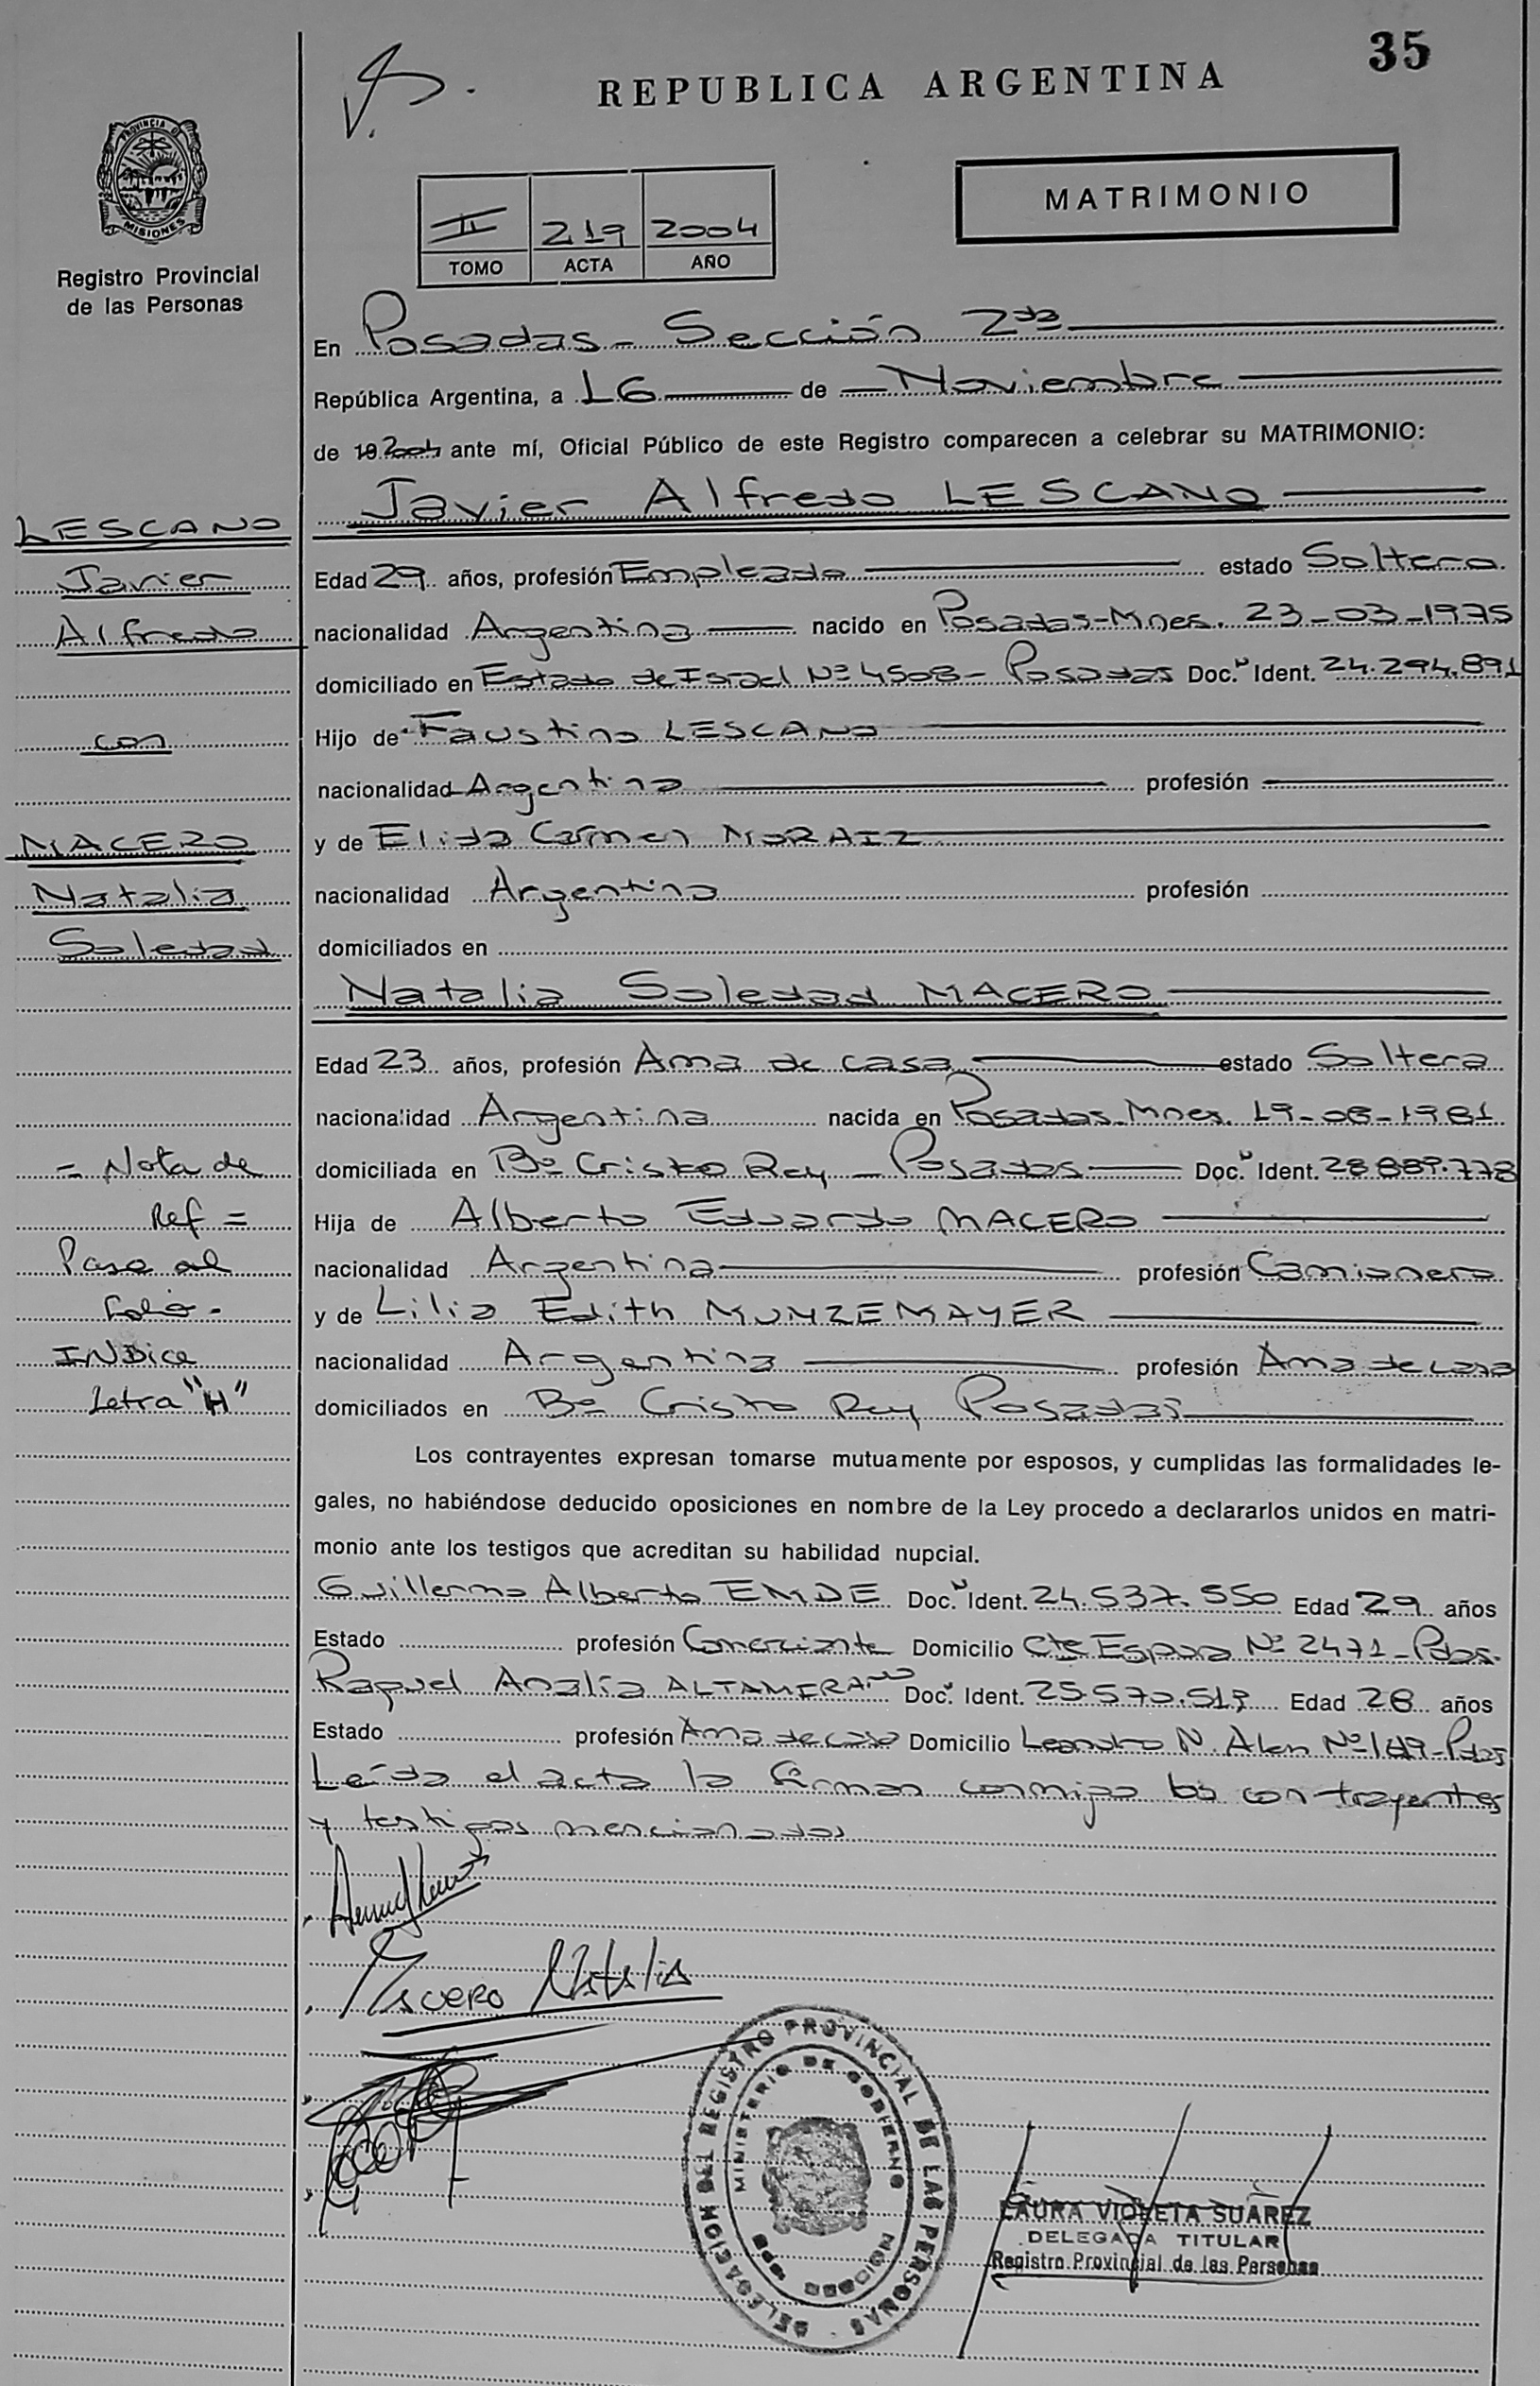 35
REPUBLICA ARGENTINA
MATRIMONIO
PROVINCIA DE
MISIONES
Registro Provincial
de las Personas
II 219 2004
TOMO ACTA AÑO
En Posadas - Sección 2da
República Argentina, a 16 de Noviembre
de 19 2004 ante mí, Oficial Público de este Registro comparecen a celebrar su MATRIMONIO:
Javier Alfredo LESCANO
LESCANO
Javier
Alfredo
con
MACERO
Natalia
Soledad
Edad 29 años, profesión Empleado estado Soltero
nacionalidad Argentina nacido en Posadas-Mnes. 23-03-1975
domiciliado en Estado de Israel Nº 4508 - Posadas Doc. Ident. 24.294.891
Hijo de Faustino LESCANO
nacionalidad Argentina profesión
y de Elida Carmen MORAIZ
nacionalidad Argentina profesión
domiciliados en
Natalia Soledad MACERO
Edad 23 años, profesión Ama de casa estado Soltera
nacionalidad Argentina nacida en Posadas-Mnes. 19-08-1981
domiciliada en Bº Cristo Rey - Posadas Doc. Ident. 28.889.778
Hija de Alberto Eduardo MACERO
nacionalidad Argentina profesión Camionero
y de Lilia Edith MUNZEMAYER
nacionalidad Argentina profesión Ama de casa
domiciliados en Bº Cristo Rey Posadas
= Nota de
Ref =
Pase al
folio -
INDice
Letra "H"
Los contrayentes expresan tomarse mutuamente por esposos, y cumplidas las formalidades le-
gales, no habiéndose deducido oposiciones en nombre de la Ley procedo a declararlos unidos en matri-
monio ante los testigos que acreditan su habilidad nupcial.
Guillermo Alberto EMDE Doc. Ident. 24.537.550 Edad 29 años
Estado profesión Comerciante Domicilio Cte Espora Nº 2471 - Pdas.
Raquel Analía ALTAMIRANO Doc. Ident. 25.570.513 Edad 28 años
Estado profesión Ama de casa Domicilio Leandro N. Alem Nº - Pdas
Leída el acta la firman conmigo los contrayentes
y testigos mencionados
Macero Natalia
DELEGACION DEL REGISTRO PROVINCIAL DE LAS PERSONAS
MINISTERIO DE GOBIERNO
LAURA VIOLETA SUÁREZ
DELEGADA TITULAR
Registro Provincial de las Personas